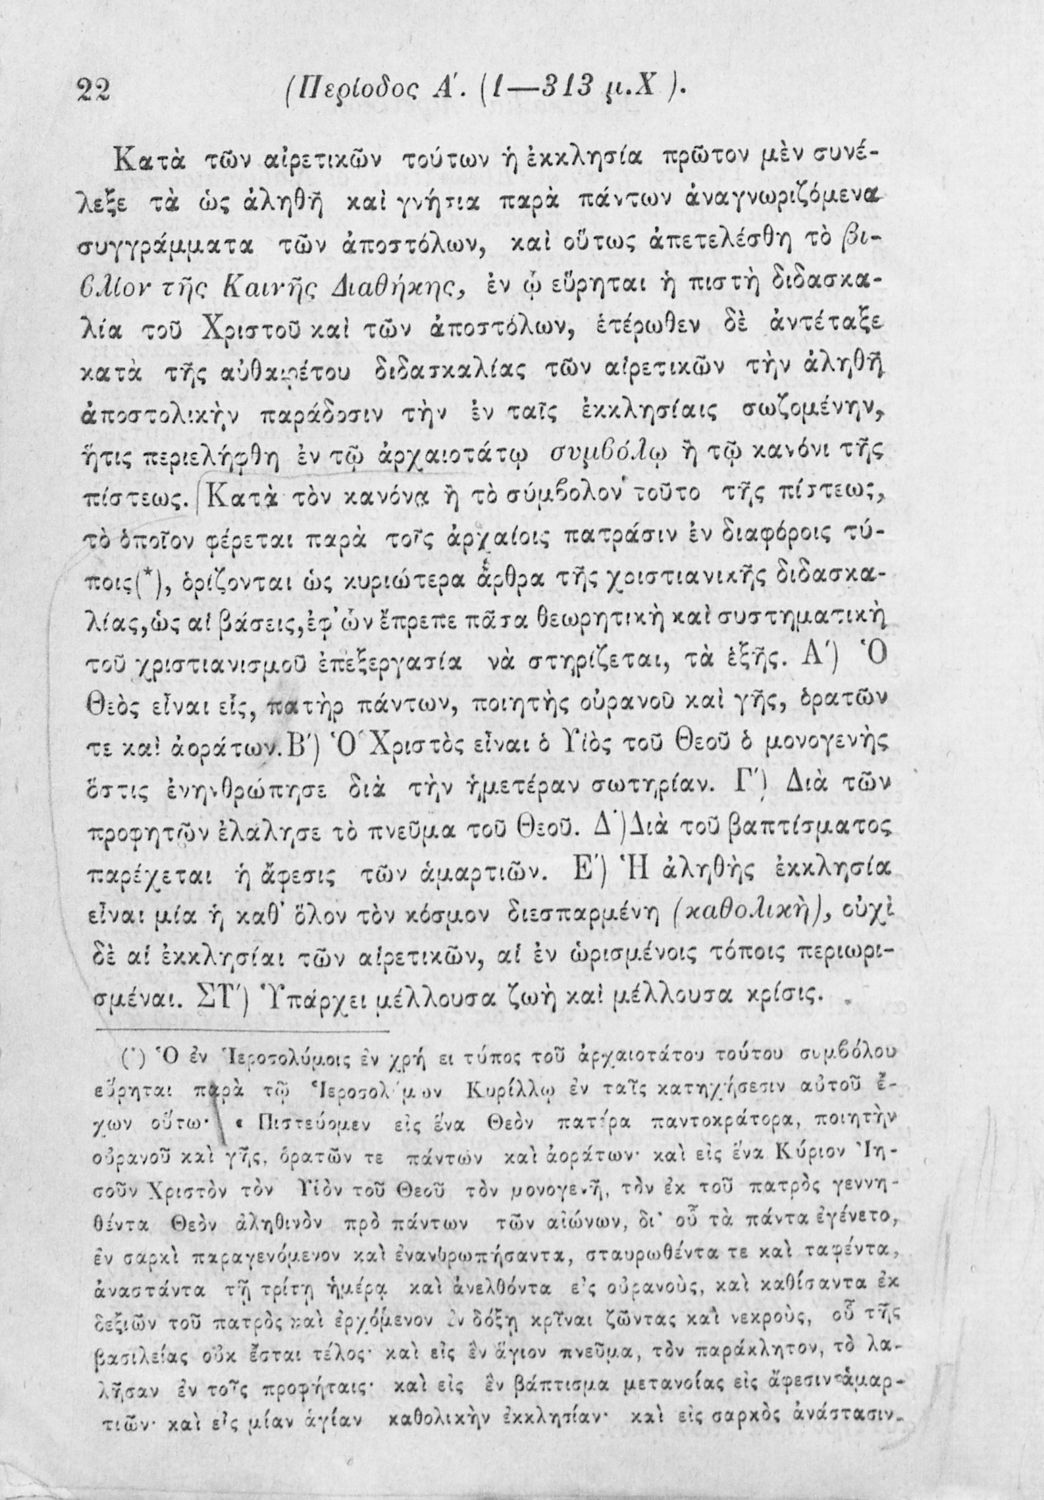 22 (Περίοδος Α΄. (1—313 μ.Χ ).
Κατὰ τῶν αἱρετικῶν τούτων ἡ ἐκκλησία πρῶτον μὲν συνέ-
λεξε τὰ ὡς ἀληθῆ καὶ γνήσια παρὰ πάντων ἀναγνωριζόμενα
συγγράμματα τῶν ἀποστόλων, καὶ οὕτως ἀπετελέσθη τὸ βι-
βλίον τῆς Καινῆς Διαθήκης, ἐν ᾧ εὕρηται ἡ πιστὴ διδασκα-
λία τοῦ Χριστοῦ καὶ τῶν ἀποστόλων, ἑτέρωθεν δὲ ἀντέταξε
κατὰ τῆς αὐθαιρέτου διδασκαλίας τῶν αἱρετικῶν τὴν ἀληθῆ
ἀποστολικὴν παράδοσιν τὴν ἐν ταῖς ἐκκλησίαις σωζομένην,
ἥτις περιελήφθη ἐν τῷ ἀρχαιοτάτῳ συμβόλῳ ἢ τῷ κανόνι τῆς
πίστεως. Κατὰ τὸν κανόνα ἢ τὸ σύμβολον τοῦτο τῆς πίστεως,
τὸ ὁποῖον φέρεται παρὰ τοῖς ἀρχαίοις πατράσιν ἐν διαφόροις τύ-
ποις(*), ὁρίζονται ὡς κυριώτερα ἄρθρα τῆς χριστιανικῆς διδασκα-
λίας,ὡς αἱ βάσεις,ἐφ᾽ὧν ἔπρεπε πᾶσα θεωρητικὴ καὶ συστηματικὴ
τοῦ χριστιανισμοῦ ἐπεξεργασία νὰ στηρίζεται, τὰ ἑξῆς. Α΄) Ὁ
Θεὸς εἶναι εἷς, πατὴρ πάντων, ποιητὴς οὐρανοῦ καὶ γῆς, ὁρατῶν
τε καὶ ἀοράτων. Β΄) Ὁ Χριστὸς εἶναι ὁ Υἱὸς τοῦ Θεοῦ ὁ μονογενὴς
ὅστις ἐνηνθρώπησε διὰ τὴν ἡμετέραν σωτηρίαν. Γ΄) Διὰ τῶν
προφητῶν ἐλάλησε τὸ πνεῦμα τοῦ Θεοῦ. Δ΄)Διὰ τοῦ βαπτίσματος
παρέχεται ἡ ἄφεσις τῶν ἁμαρτιῶν. Ε΄) Ἡ ἀληθὴς ἐκκλησία
εἶναι μία ἡ καθ᾽ ὅλον τὸν κόσμον διεσπαρμένη (καθολικὴ), οὐχὶ
δὲ αἱ ἐκκλησίαι τῶν αἱρετικῶν, αἱ ἐν ὡρισμένοις τόποις περιωρι-
σμέναι. ΣΤ΄) Ὑπάρχει μέλλουσα ζωὴ καὶ μέλλουσα κρίσις.
(*) Ὁ ἐν Ἱεροσολύμοις ἐν χρήσει τύπος τοῦ ἀρχαιοτάτου τούτου συμβόλου
εὕρηται παρὰ τῷ Ἱεροσολύμων Κυρίλλῳ ἐν ταῖς κατηχήσεσιν αὐτοῦ ἔ-
χων οὕτω· « Πιστεύομεν εἰς ἕνα Θεὸν πατέρα παντοκράτορα, ποιητὴν
οὐρανοῦ καὶ γῆς, ὁρατῶν τε πάντων καὶ ἀοράτων· καὶ εἰς ἕνα Κύριον Ἰη-
σοῦν Χριστὸν τὸν Υἱὸν τοῦ Θεοῦ τὸν μονογενῆ, τὸν ἐκ τοῦ πατρὸς γεννη-
θέντα Θεὸν ἀληθινὸν πρὸ πάντων τῶν αἰώνων, δι᾽ οὗ τὰ πάντα ἐγένετο,
ἐν σαρκὶ παραγενόμενον καὶ ἐνανθρωπήσαντα, σταυρωθέντα τε καὶ ταφέντα,
ἀναστάντα τῇ τρίτῃ ἡμέρᾳ καὶ ἀνελθόντα εἰς οὐρανοὺς, καὶ καθίσαντα ἐκ
δεξιῶν τοῦ πατρὸς καὶ ἐρχόμενον ἐν δόξῃ κρῖναι ζῶντας καὶ νεκροὺς, οὗ τῆς
βασιλείας οὐκ ἔσται τέλος· καὶ εἰς ἓν ἅγιον πνεῦμα, τὸν παράκλητον, τὸ λα-
λῆσαν ἐν τοῖς προφήταις· καὶ εἰς ἓν βάπτισμα μετανοίας εἰς ἄφεσιν ἁμαρ-
τιῶν· καὶ εἰς μίαν ἁγίαν καθολικὴν ἐκκλησίαν· καὶ εἰς σαρκὸς ἀνάστασιν